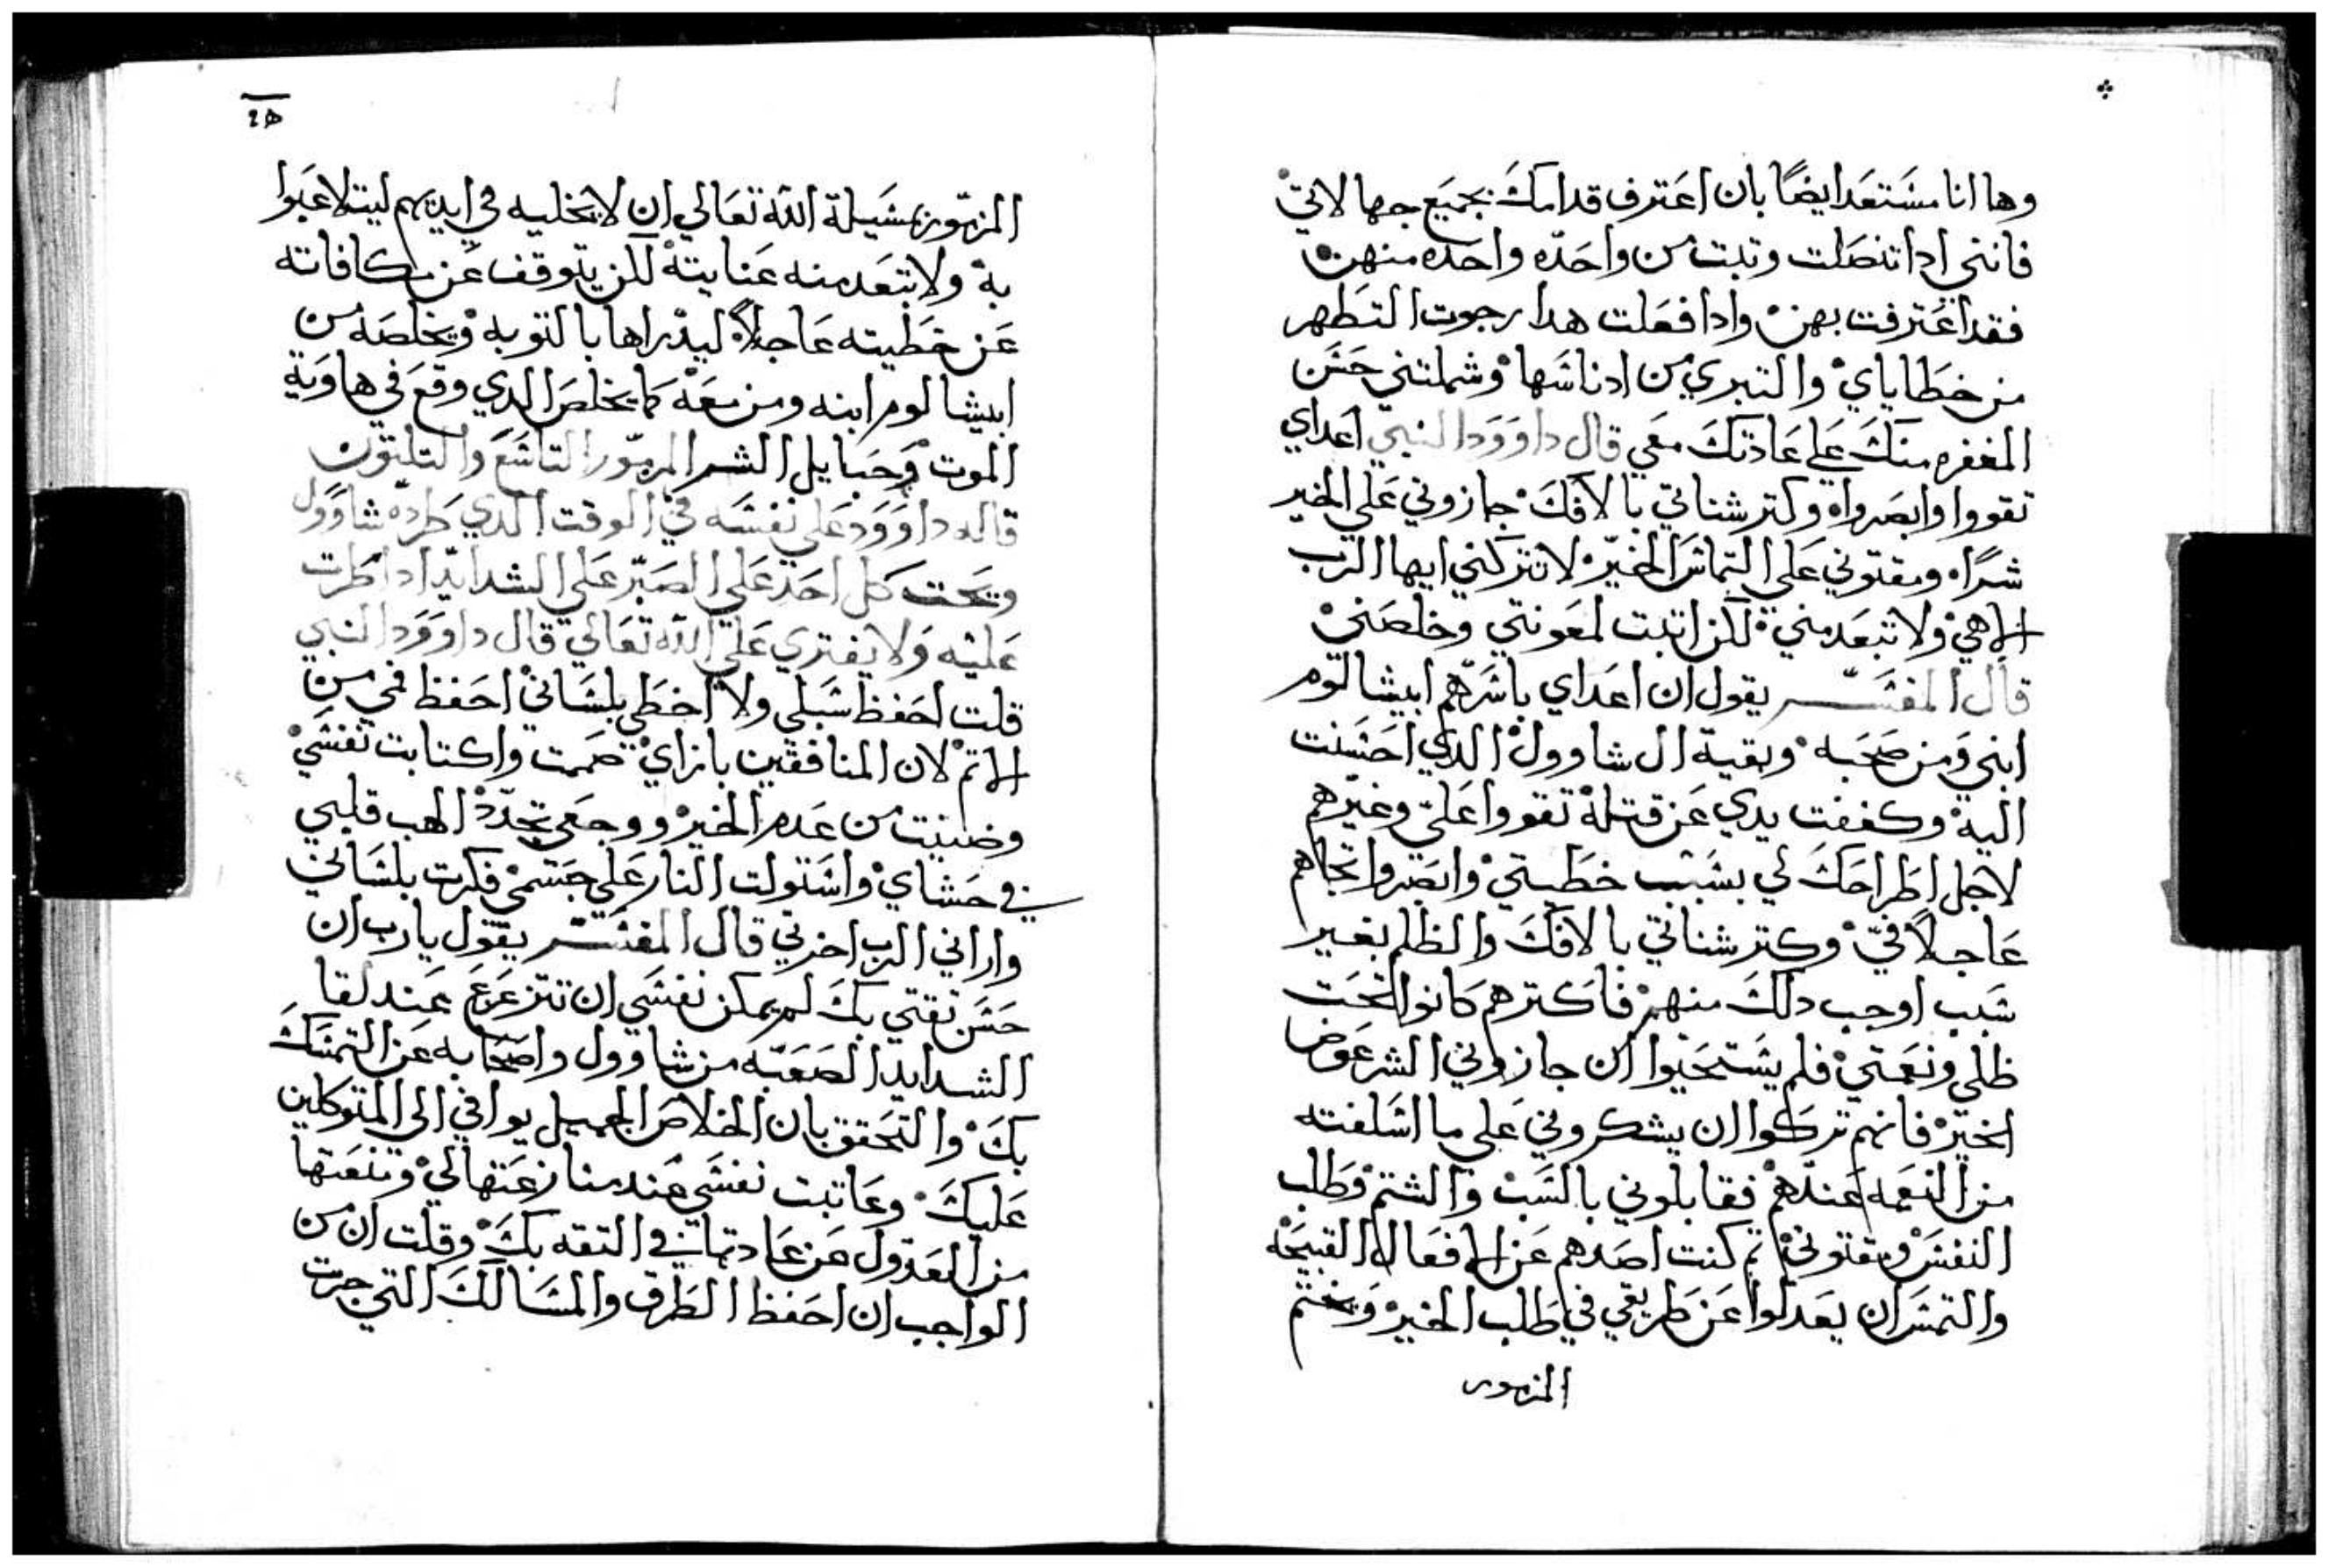 وها انا مستعد ايضًا بان اعترف قدامك بجميع جهالاتي
فانني ادا تنصلت وتبت من واحده واحده منهن
فقد اعترفت بهن وادا فعلت هدا رجوت التطهر
من خطاياي والتبري من ادناسها وشملتني حسن
المغفره منك علي عادتك معي قال داوود النبي اعداي
تقووا وابصروا وكتر شناتي بالافك جازوني علي الخير
شرًا ومقتوني علي التماس الخير لا تتركني ايها الرب
الاهي ولا تبعد مني لكن اتبت لمعونتي وخلصني
قال المفسر يقول ان اعداي باسرهم ابيشالوم
ابني ومن صحبه وبقية ال شاوول الدي احسنت
اليه وكففت يدي عن قتله تقووا علي وغيرهم
لاجل اطراحك لي بسبب خطيتي وابصروا تجاهم
عاجلاً في وكتر شناتي بالافك والظلم بغير
سبب اوجب دلك منهم فاكترهم كانوا تحت
ظلي ونعمتي فلم يستحيوا ان جازوني الشر عوض
الخير فانهم تركوا ان يشكروني علي ما اسلفته
من النعمه عندهم فقابلوني بالسب والشتم وطلب
النفس ومقتوني تم كنت اصدهم عن الافعال القبيحه
والتمس ان يعدلوا عن طريقي في طلب الخير ويختم
المزمور
المزمور بمسيلة الله تعالي ان لا يخليه في ايديهم ليتلاعبوا
به ولا تبعد منه عنايته لكن يتوقف عن مكافاته
عن خطيته عاجلاً ليدراها بالتوبه ويخلصه من
ابيشالوم ابنه ومن معه كما يخلص الدي وقع في هاوية
الموت وحبايل الشر المزمور التاسع والتلتون
قاله داوود علي نفسه في الوقت الدي طرده شاوول
ويحت كل احد علي الصبر علي الشدايد ادا طرت
عليه ولا يفتري علي الله تعالي قال داوود النبي
قلت احفظ سبلي ولا اخطي بلساني احفظ فمي من
الاتم لان المنافقين بازاي صمت واكتابت نفسي
وضنيت من عدم الخير ووجعي تجدد الهب قلبي
في حشاي واستولت النار علي جسمي فكرت بلساني
واراني الرب اخرتي قال المفسر يقول يارب ان
حسن تقتي بك لم يمكن نفسي ان تتزعزع عند لقا
الشدايد الصعبه من شاوول واصحابه عن التمسك
بك والتحقق بان الخلاص الجميل يوافي الي المتوكلين
عليك وعاتبت نفسي عند منازعتها لي وتنعتها
من العدول عن عادتها في التقه بك وقلت ان من
الواجب ان احفظ الطرق والمسالك التي جرت